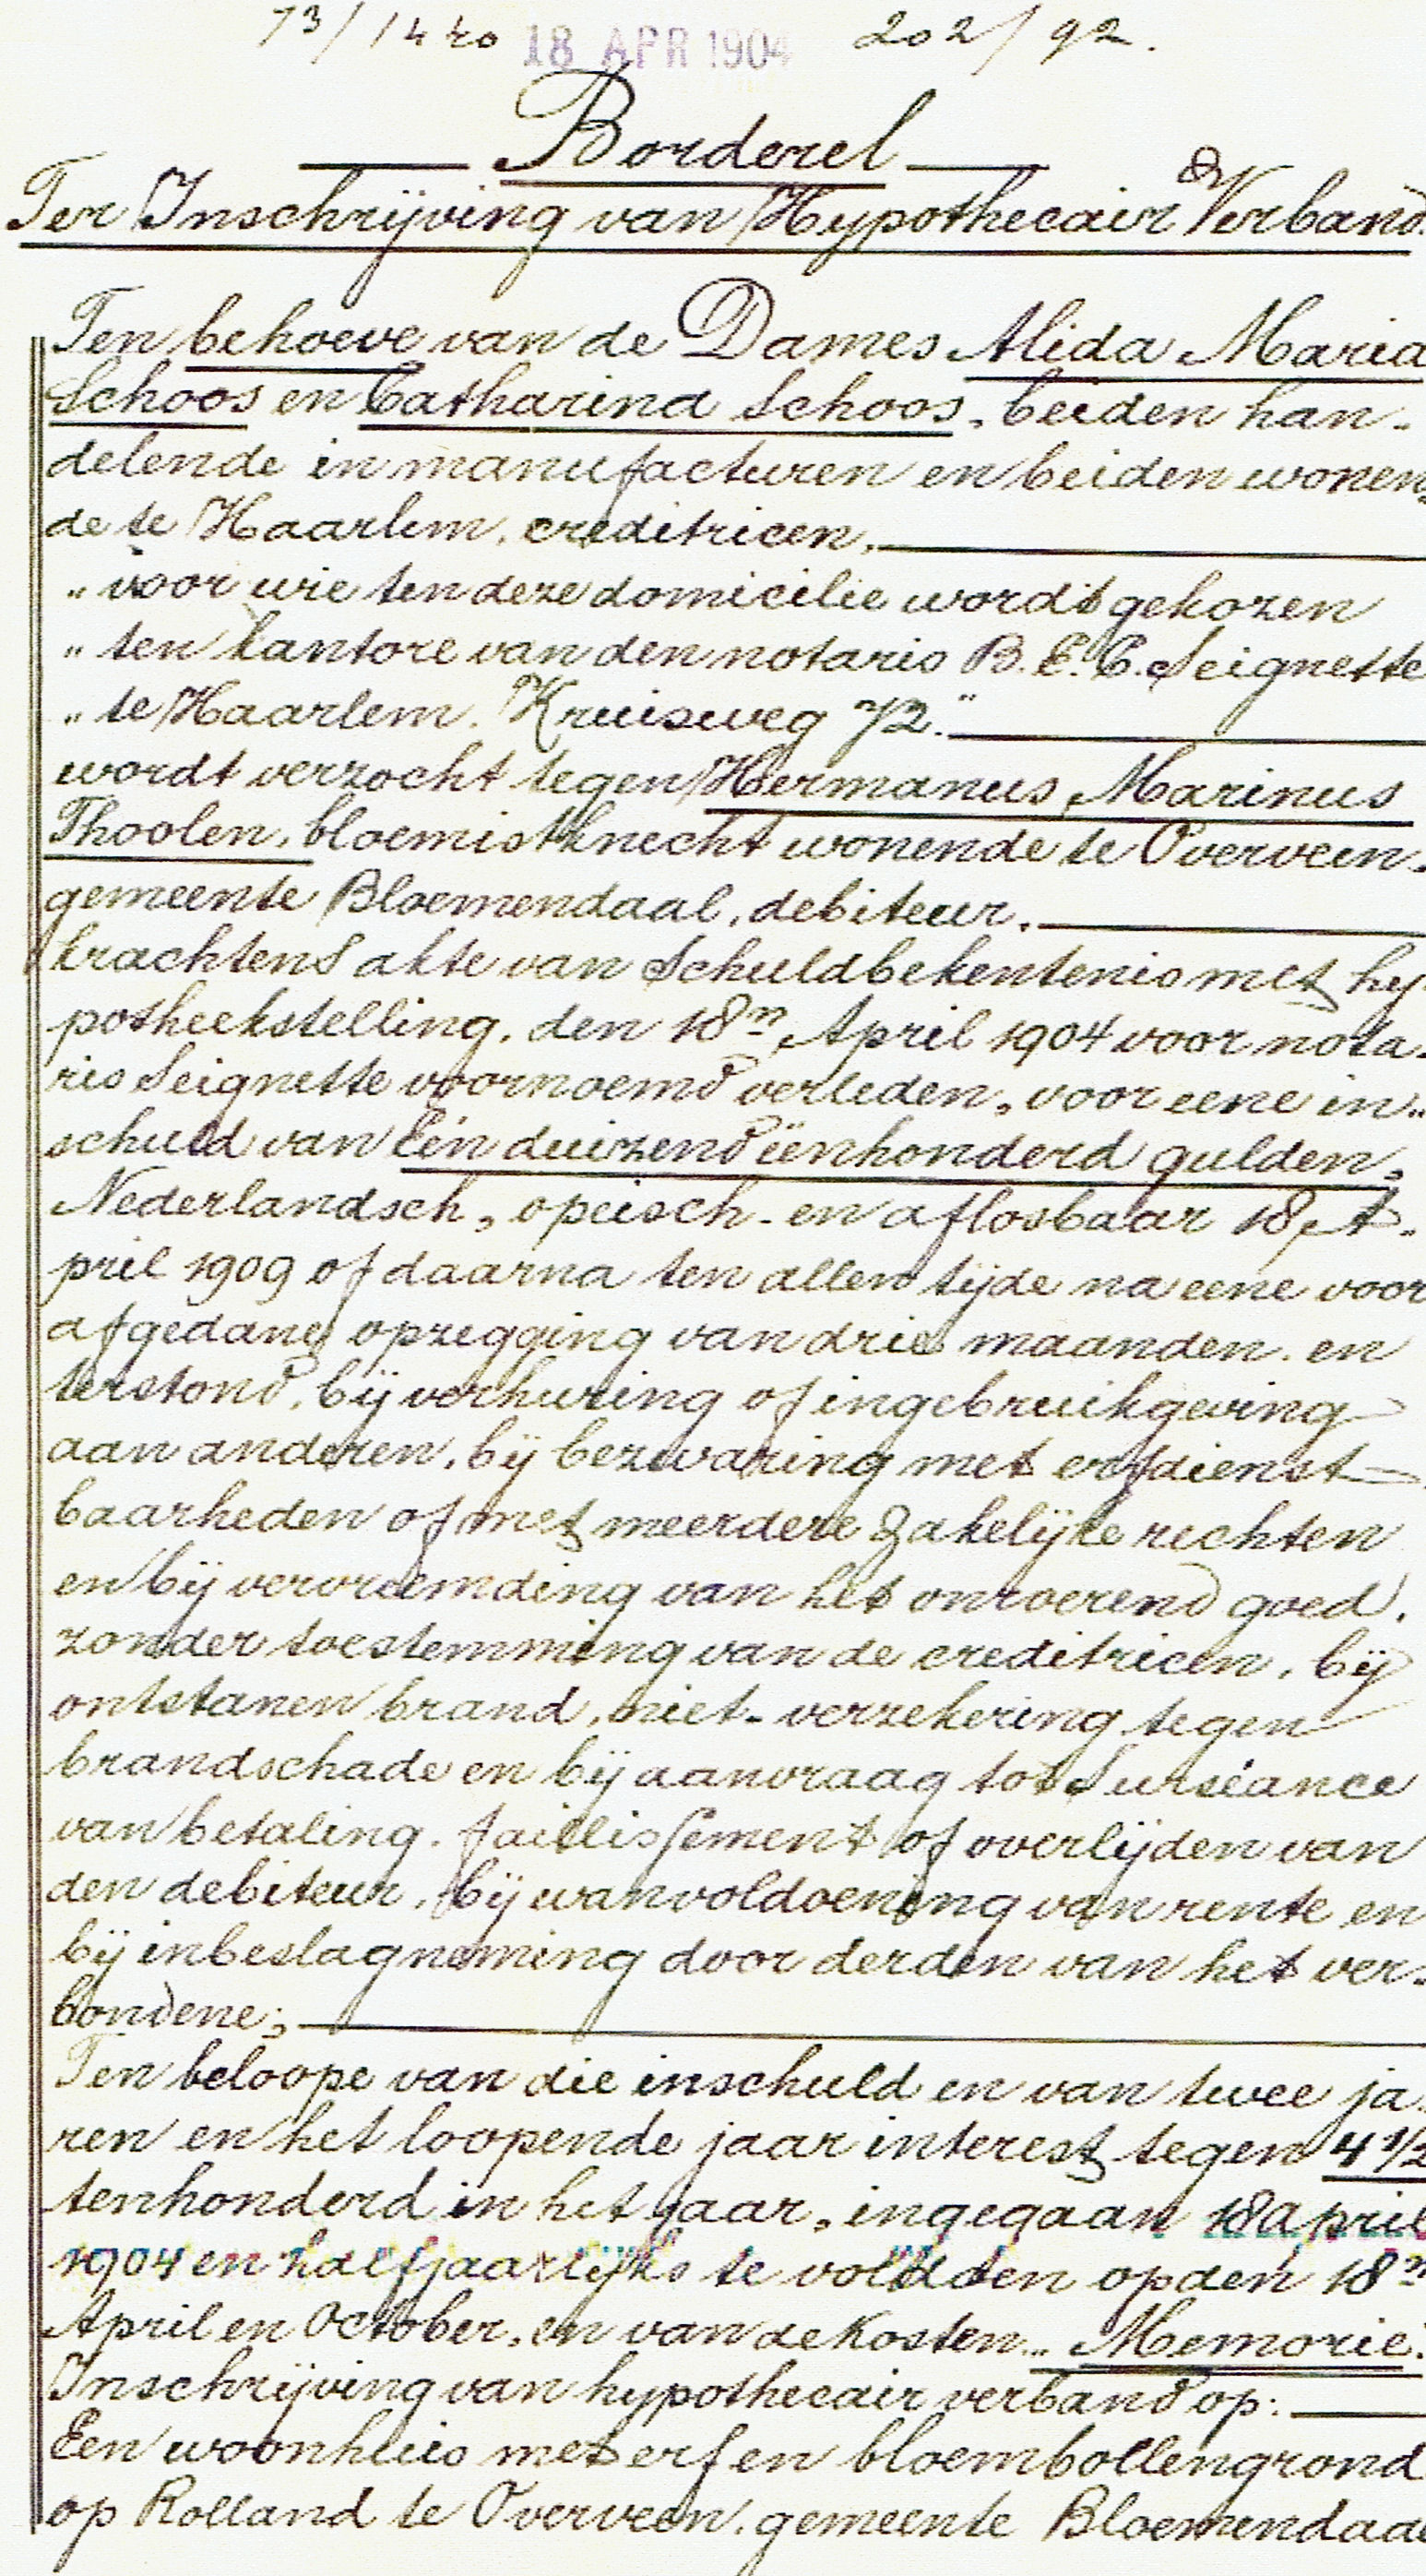 73/1420 18 APR 1904 202/92.
Borderel
Ter Inschrijving van Hypothecair Verband.
Ten behoeve van de Dames Alida Maria
Schoos en Catharina Schoos, beiden han-
delende in manufacturen en beiden wonen-
de te Haarlem, creditricen,
„voor wie ten deze domicilie wordt gekozen
„ten kantore van den notaris B.E.C. Seignette
„te Haarlem. Kruisweg 72."
wordt verzocht tegen Hermanus Marinus
Thoolen, bloemistknecht wonende te Overveen.
gemeente Bloemendaal, debiteur,
krachtens akte van Schuldbekentenis met hy-
potheekstelling, den 18n April 1904 voor nota-
ris Seignette voornoemd verleden, voor eene in-
schuld van Eén duizend éénhonderd gulden,
Nederlandsch, opeisch- en aflosbaar 18 A-
pril 1909 of daarna ten allen tijde na eene voor
afgedane opzegging van drie maanden. en
terstond, bij verhuring of ingebruikgeving
aan anderen, bij bezwaring met erfdienst-
baarheden of met meerdere zakelijke rechten
en bij vervreemding van het onroerend goed,
zonder toestemming van de creditricen, bij
ontstanen brand, niet-verzekering tegen
brandschade en bij aanvraag tot Surséance
van betaling. faillissement of overlijden van
den debiteur, bij wanvoldoening van rente en
bij inbeslagneming door derden van het ver-
bondene;
Ten beloope van die inschuld en van twee ja-
ren en het loopende jaar interest tegen 4 1/2
tenhonderd in het jaar, ingegaan 18 April
1904 en halfjaarlijks te voldoen op den 18n
April en October, en van de Kosten... Memorie.
Inschrijving van hypothecair verband op:
Een woonhuis met erf en bloembollengrond
op Rolland te Overveen, gemeente Bloemendaal